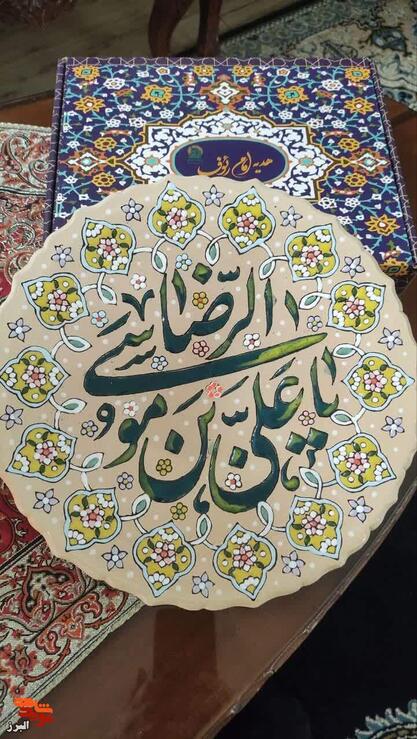 هدیه امام رئوف
یا علی بن موسی الرضا
البرز